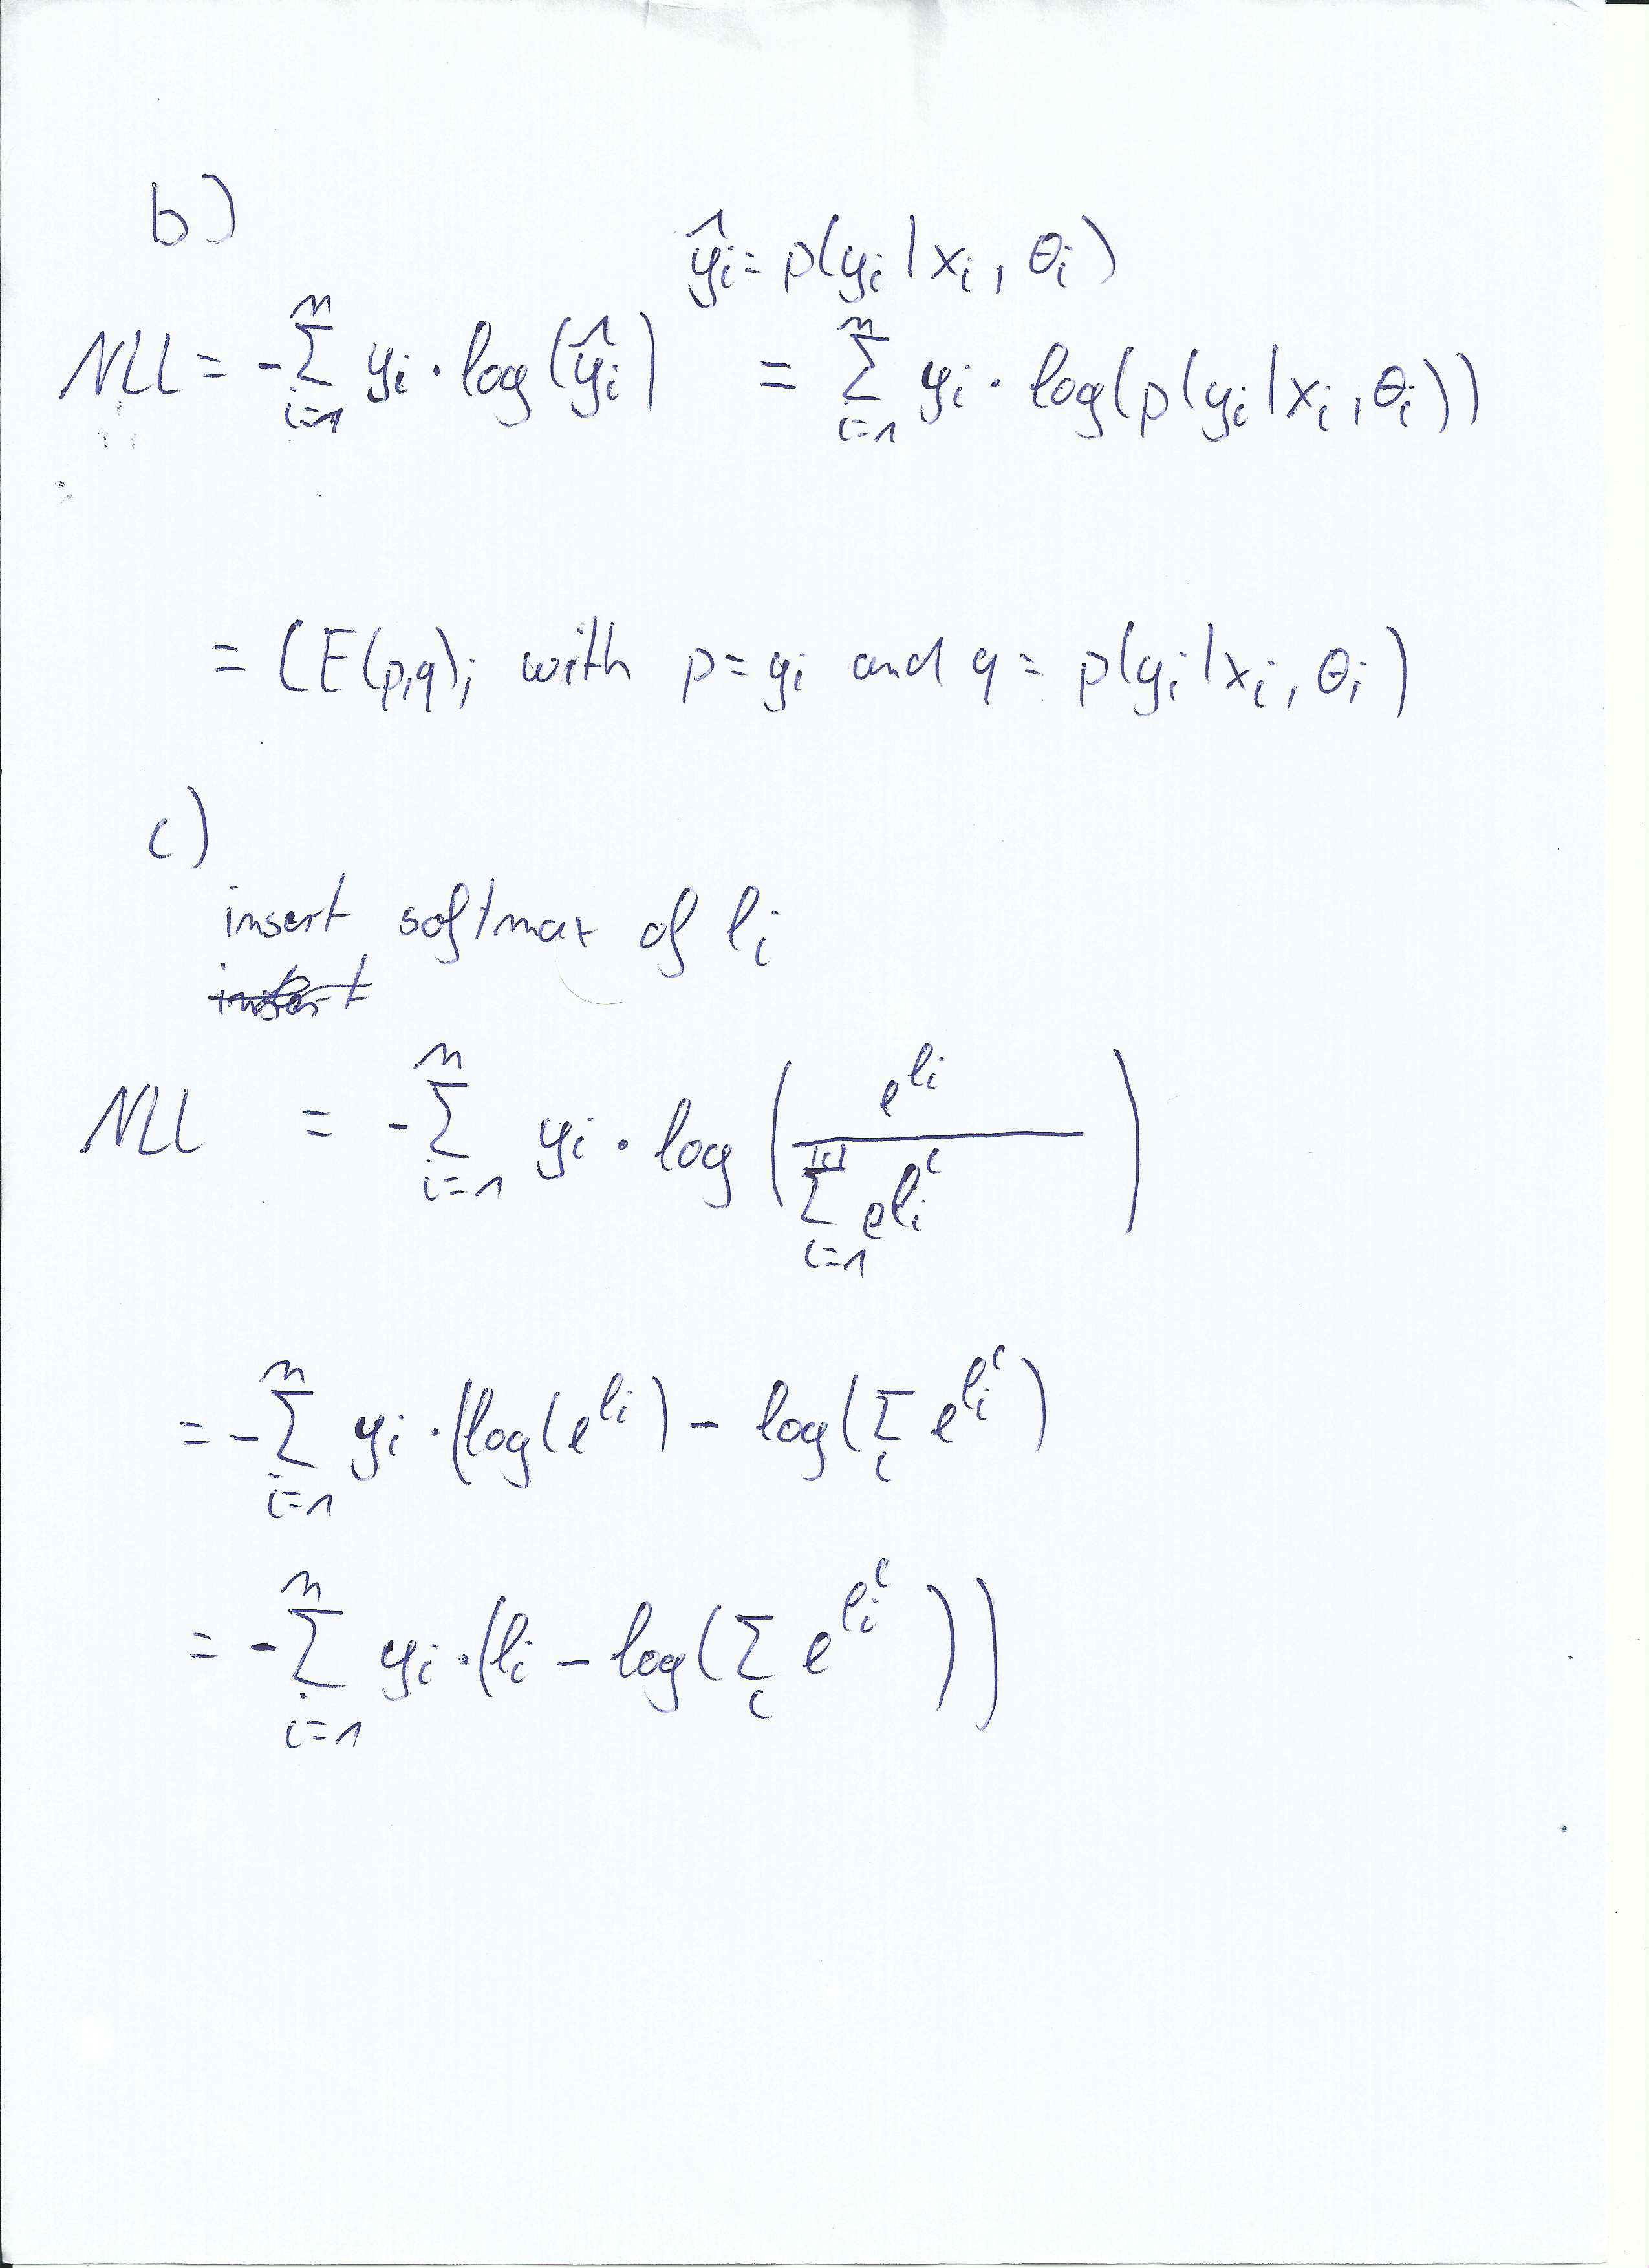 b)
ŷᵢ = p(yᵢ | xᵢ, θᵢ)
NLL = -∑ᵢ₌₁ⁿ yᵢ · log(ŷᵢ) = ∑ᵢ₌₁ⁿ yᵢ · log(p(yᵢ | xᵢ, θᵢ))
= CE(p,q); with p = yᵢ and q = p(yᵢ | xᵢ, θᵢ)
c)
insert softmax of lᵢ
NLL = -∑ᵢ₌₁ⁿ yᵢ · log( e^{lᵢ} / ∑_{c=1}^{|C|} e^{lᵢ^c} )
= -∑ᵢ₌₁ⁿ yᵢ · (log(e^{lᵢ}) - log(∑_c e^{lᵢ^c})
= -∑ᵢ₌₁ⁿ yᵢ · (lᵢ - log(∑_c e^{lᵢ^c}))